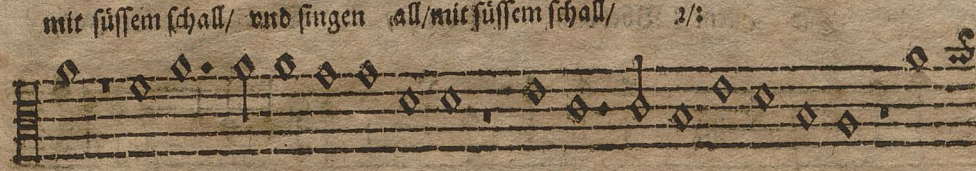 mit süssem schall/ vnd singen all/mit süssem schall/ 2/: